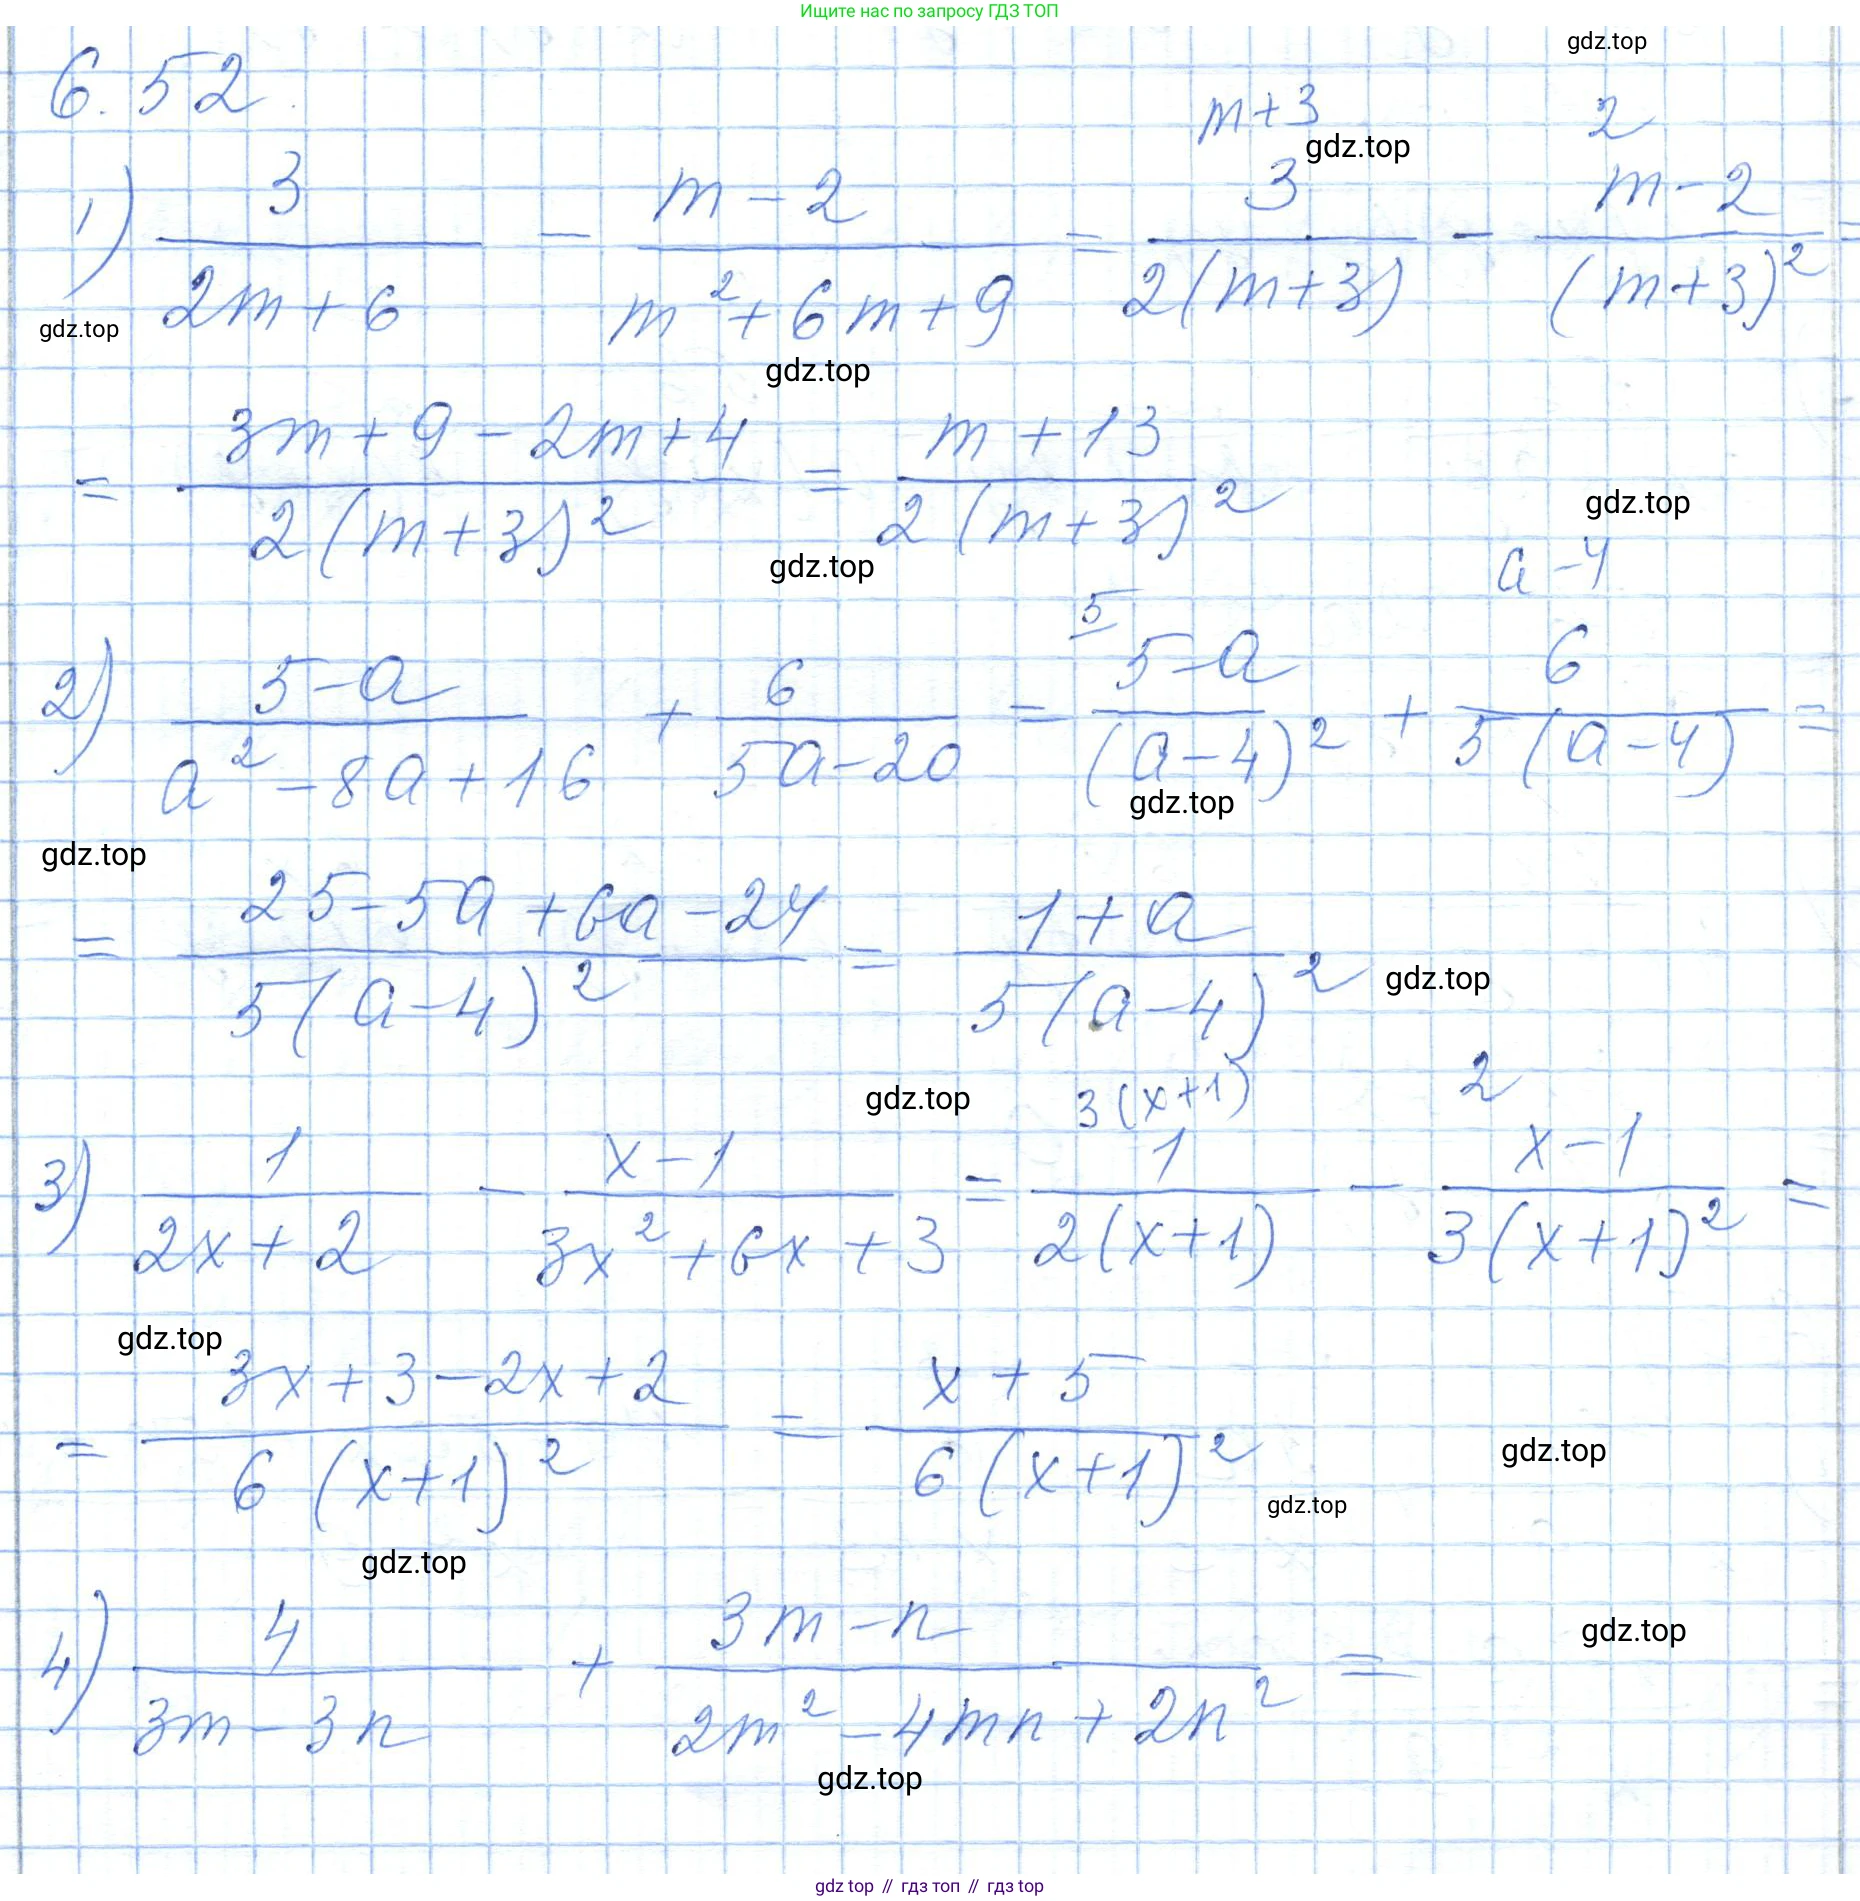 Ищите нас по запросу ГДЗ ТОП
gdz.top
6.52.
m+3 2
gdz.top
1) 3/(2m+6) - (m-2)/(m²+6m+9) = 3/(2(m+3)) - (m-2)/((m+3)²) =
gdz.top
gdz.top
= (3m+9-2m+4)/(2(m+3)²) = (m+13)/(2(m+3)²)
gdz.top
gdz.top
5 a-4
2) (5-a)/(a²-8a+16) + 6/(5a-20) = (5-a)/((a-4)²) + 6/(5(a-4)) =
gdz.top
gdz.top
= (25-5a+6a-24)/(5(a-4)²) = (1+a)/(5(a-4)²)
gdz.top
gdz.top
3(x+1) 2
3) 1/(2x+2) - (x-1)/(3x²+6x+3) = 1/(2(x+1)) - (x-1)/(3(x+1)²) =
gdz.top
= (3x+3-2x+2)/(6(x+1)²) = (x+5)/(6(x+1)²)
gdz.top
gdz.top
gdz.top
4) 4/(3m-3n) + (3m-n)/(2m²-4mn+2n²) =
gdz.top
gdz.top
gdz top // гдз топ // gdz top